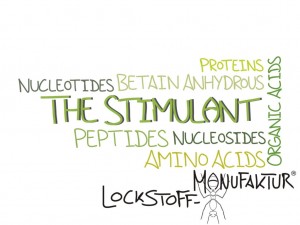 PROTEINS
NUCLEOTIDES BETAIN ANHYDROUS
THE STIMULANT
PEPTIDES NUCLEOSIDES
AMINO ACIDS
ORGANIC ACIDS
LOCKSTOFF-
MANUFAKTUR®